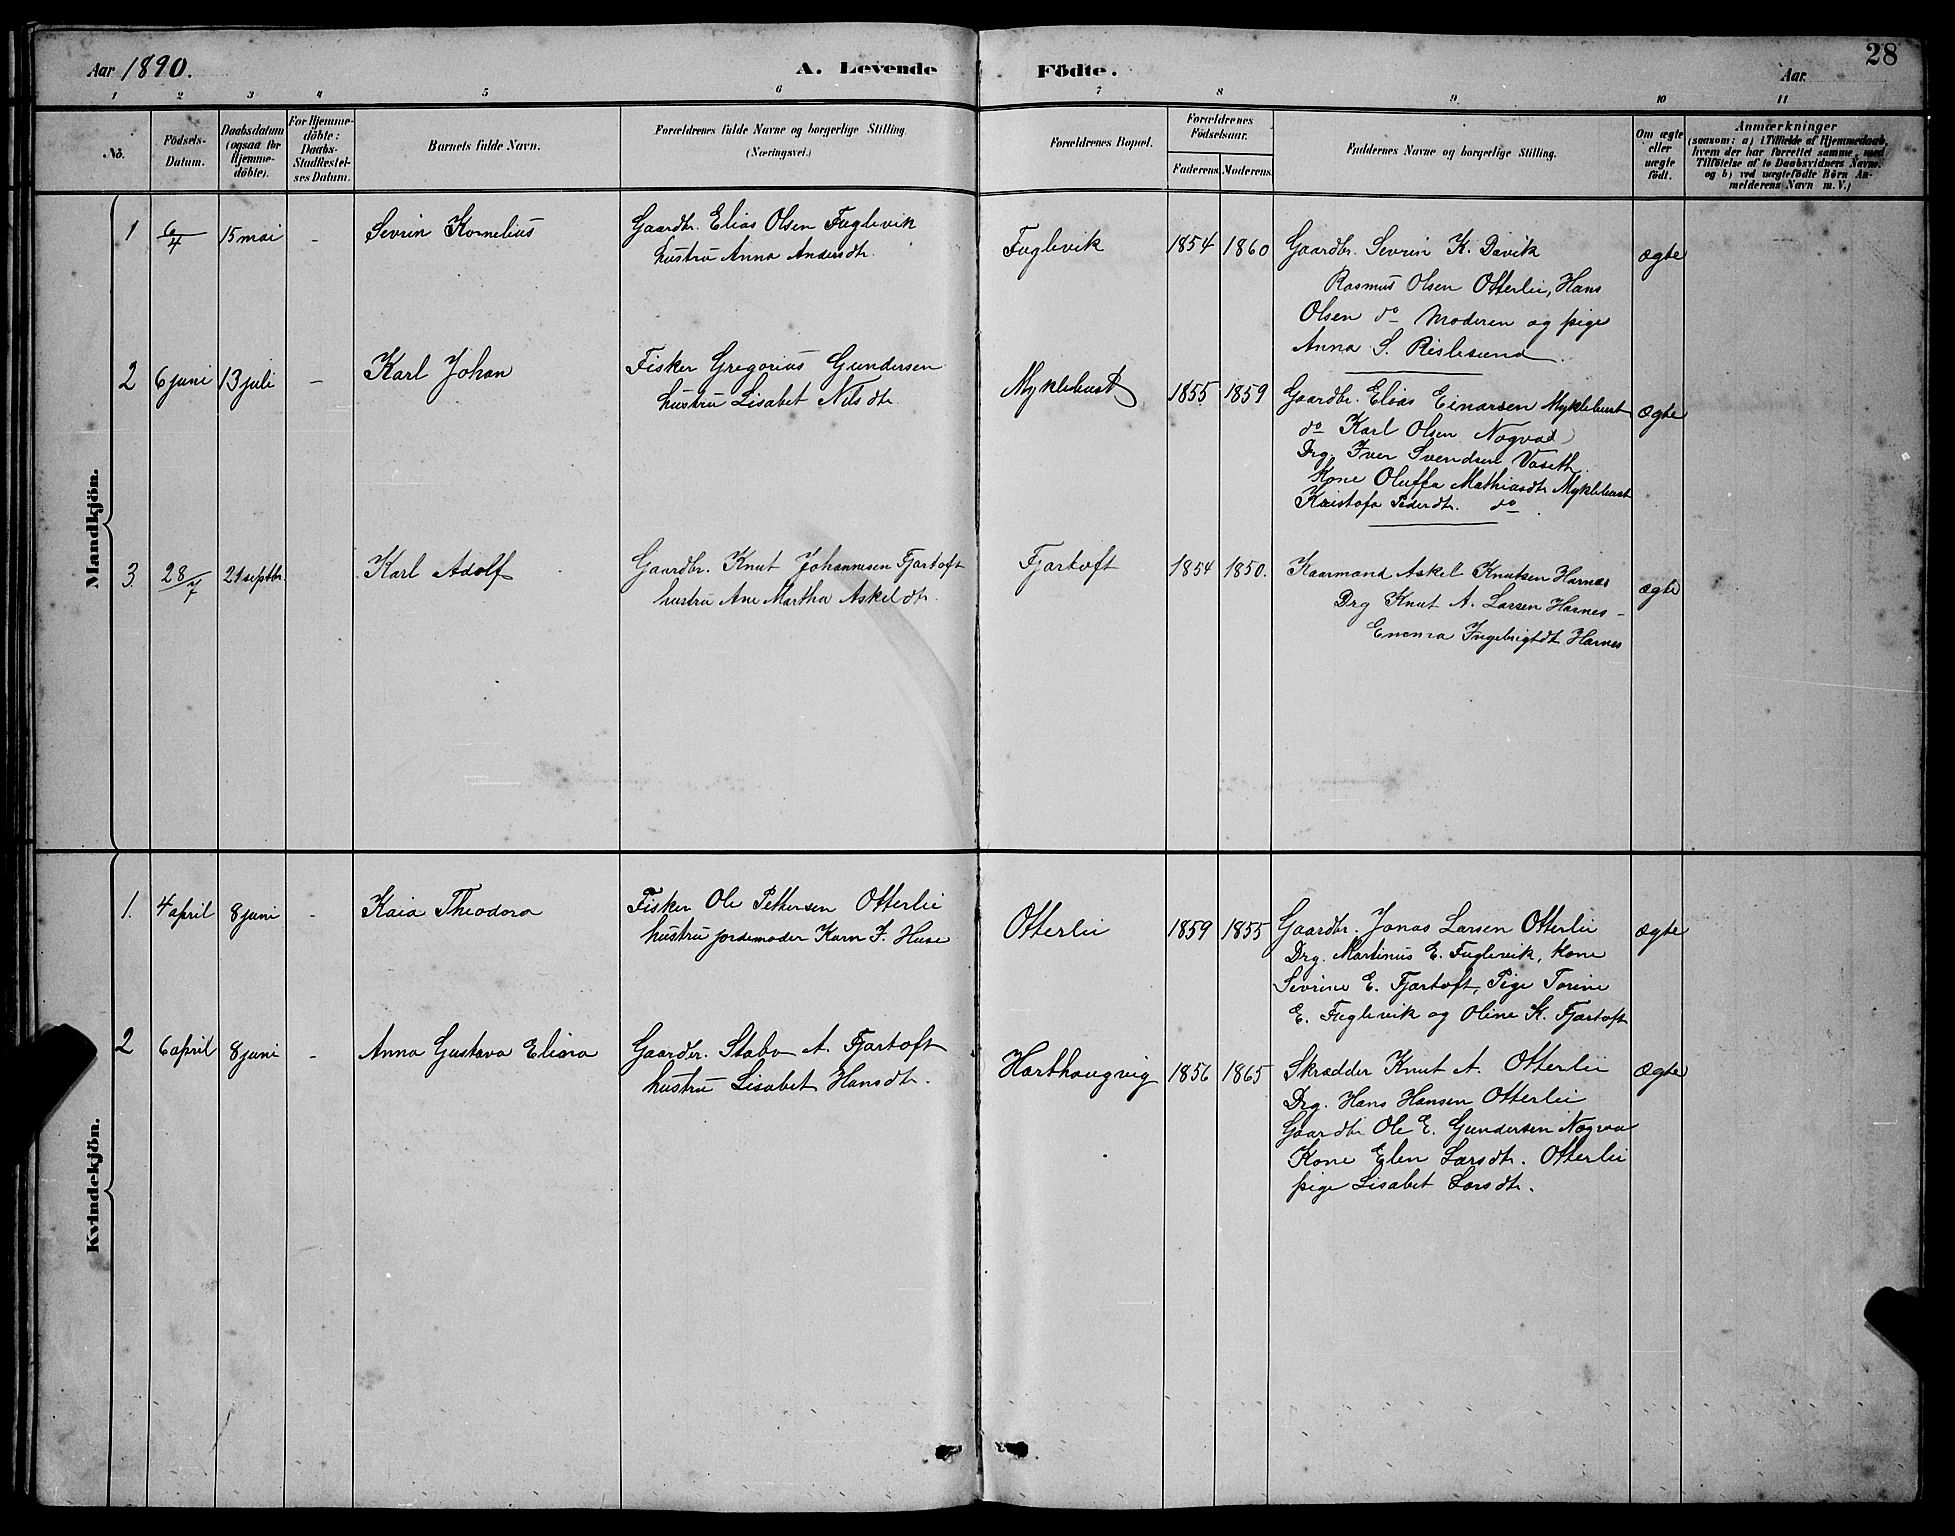 28
Aar 1890.
A. Levende Födte.
Aar.
1 2 3 4 5 6 7 8 9 10 11
No.
Födsels-Datum.
Daabsdatum (ogsaa for Hjemmedöbte).
For Hjemmedöbte: Daabs-Stadfæstelses Datum.
Barnets fulde Navn.
Forældrenes fulde Navne og borgerlige Stilling. (Næringsvei.)
Forældrenes Bopæl.
Forældrenes Födselsaar.
Faderens. Moderens.
Faddernes Navne og borgerlige Stilling.
Om ægte eller uægte födt.
Anmærkninger
(saasom: a) i Tilfælde af Hjemmedaab, hvem der har forrettet samme, med Tilföielse af to Daabsvidners Navne, og b) ved uægtefödte Börn Anmelderens Navn m. V.)
Mandkjön.
1 6/4 15 mai - Sevrin Kornelius
Gaardbr. Elias Olsen Fuglevik
hustru Anna Andersdtr.
Fuglevik 1854 1860
Gaardbr. Sevrin K. Davik
Rasmus Olsen Otterlei, Hans
Olsen do Moderen og pige
Anna S. Rislesund
ægte
2 6 juni 13 juli - Karl Johan
Fisker Gregorius Gundersen
hustru Lisabet Nilsdtr.
Myklebust 1855 1859
Gaardbr. Elias Einarsen Myklebust
do Karl Olsen Nogvad
Drg. Iver Svendsen Vaseth
Kone Oluffa Mathiasdtr Myklebust
Kristofa Pedersdtr. do
ægte
3 28/7 21 septbr. Karl Adolf
Gaardbr. Knut Johannesen Fjærtoft
hustru Ane Martha Askeldtr.
Fjærtoft 1854 1850.
Kaarmand Askel Knutsen Harnes
Drg Knut A. Larsen Harnes
Emma Ingebrigtdt. Harnes
ægte
Kvindekjön.
1. 4 april 8 juni - Kaia Theodora
Fisker Ole Pettersen Otterlei
hustru jordemoder Karn J. Huse
Otterlei 1859 1855
Gaardbr. Jonas Larsen Otterlei
Drg. Martinus E. Fuglevik, kone
Sevrine E. Fjærtoft, Pige Torine
E. Fuglevik og Oline K. Fjærtoft
ægte
2 6 april 8 juni - Anna Gustava Eliana
Gaardbr. Stabo A. Fjærtoft
hustru Lisabet Hansdtr.
Harthaugvig 1856 1865
Skrædder Knut A. Otterlei
Drg. Hans Hansen Otterlei
Gaardbr Ole E. Gundersen Nogvaa
Kone Elen Larsdtr. Otterlei
pige Lisabet Larsdtr.
ægte